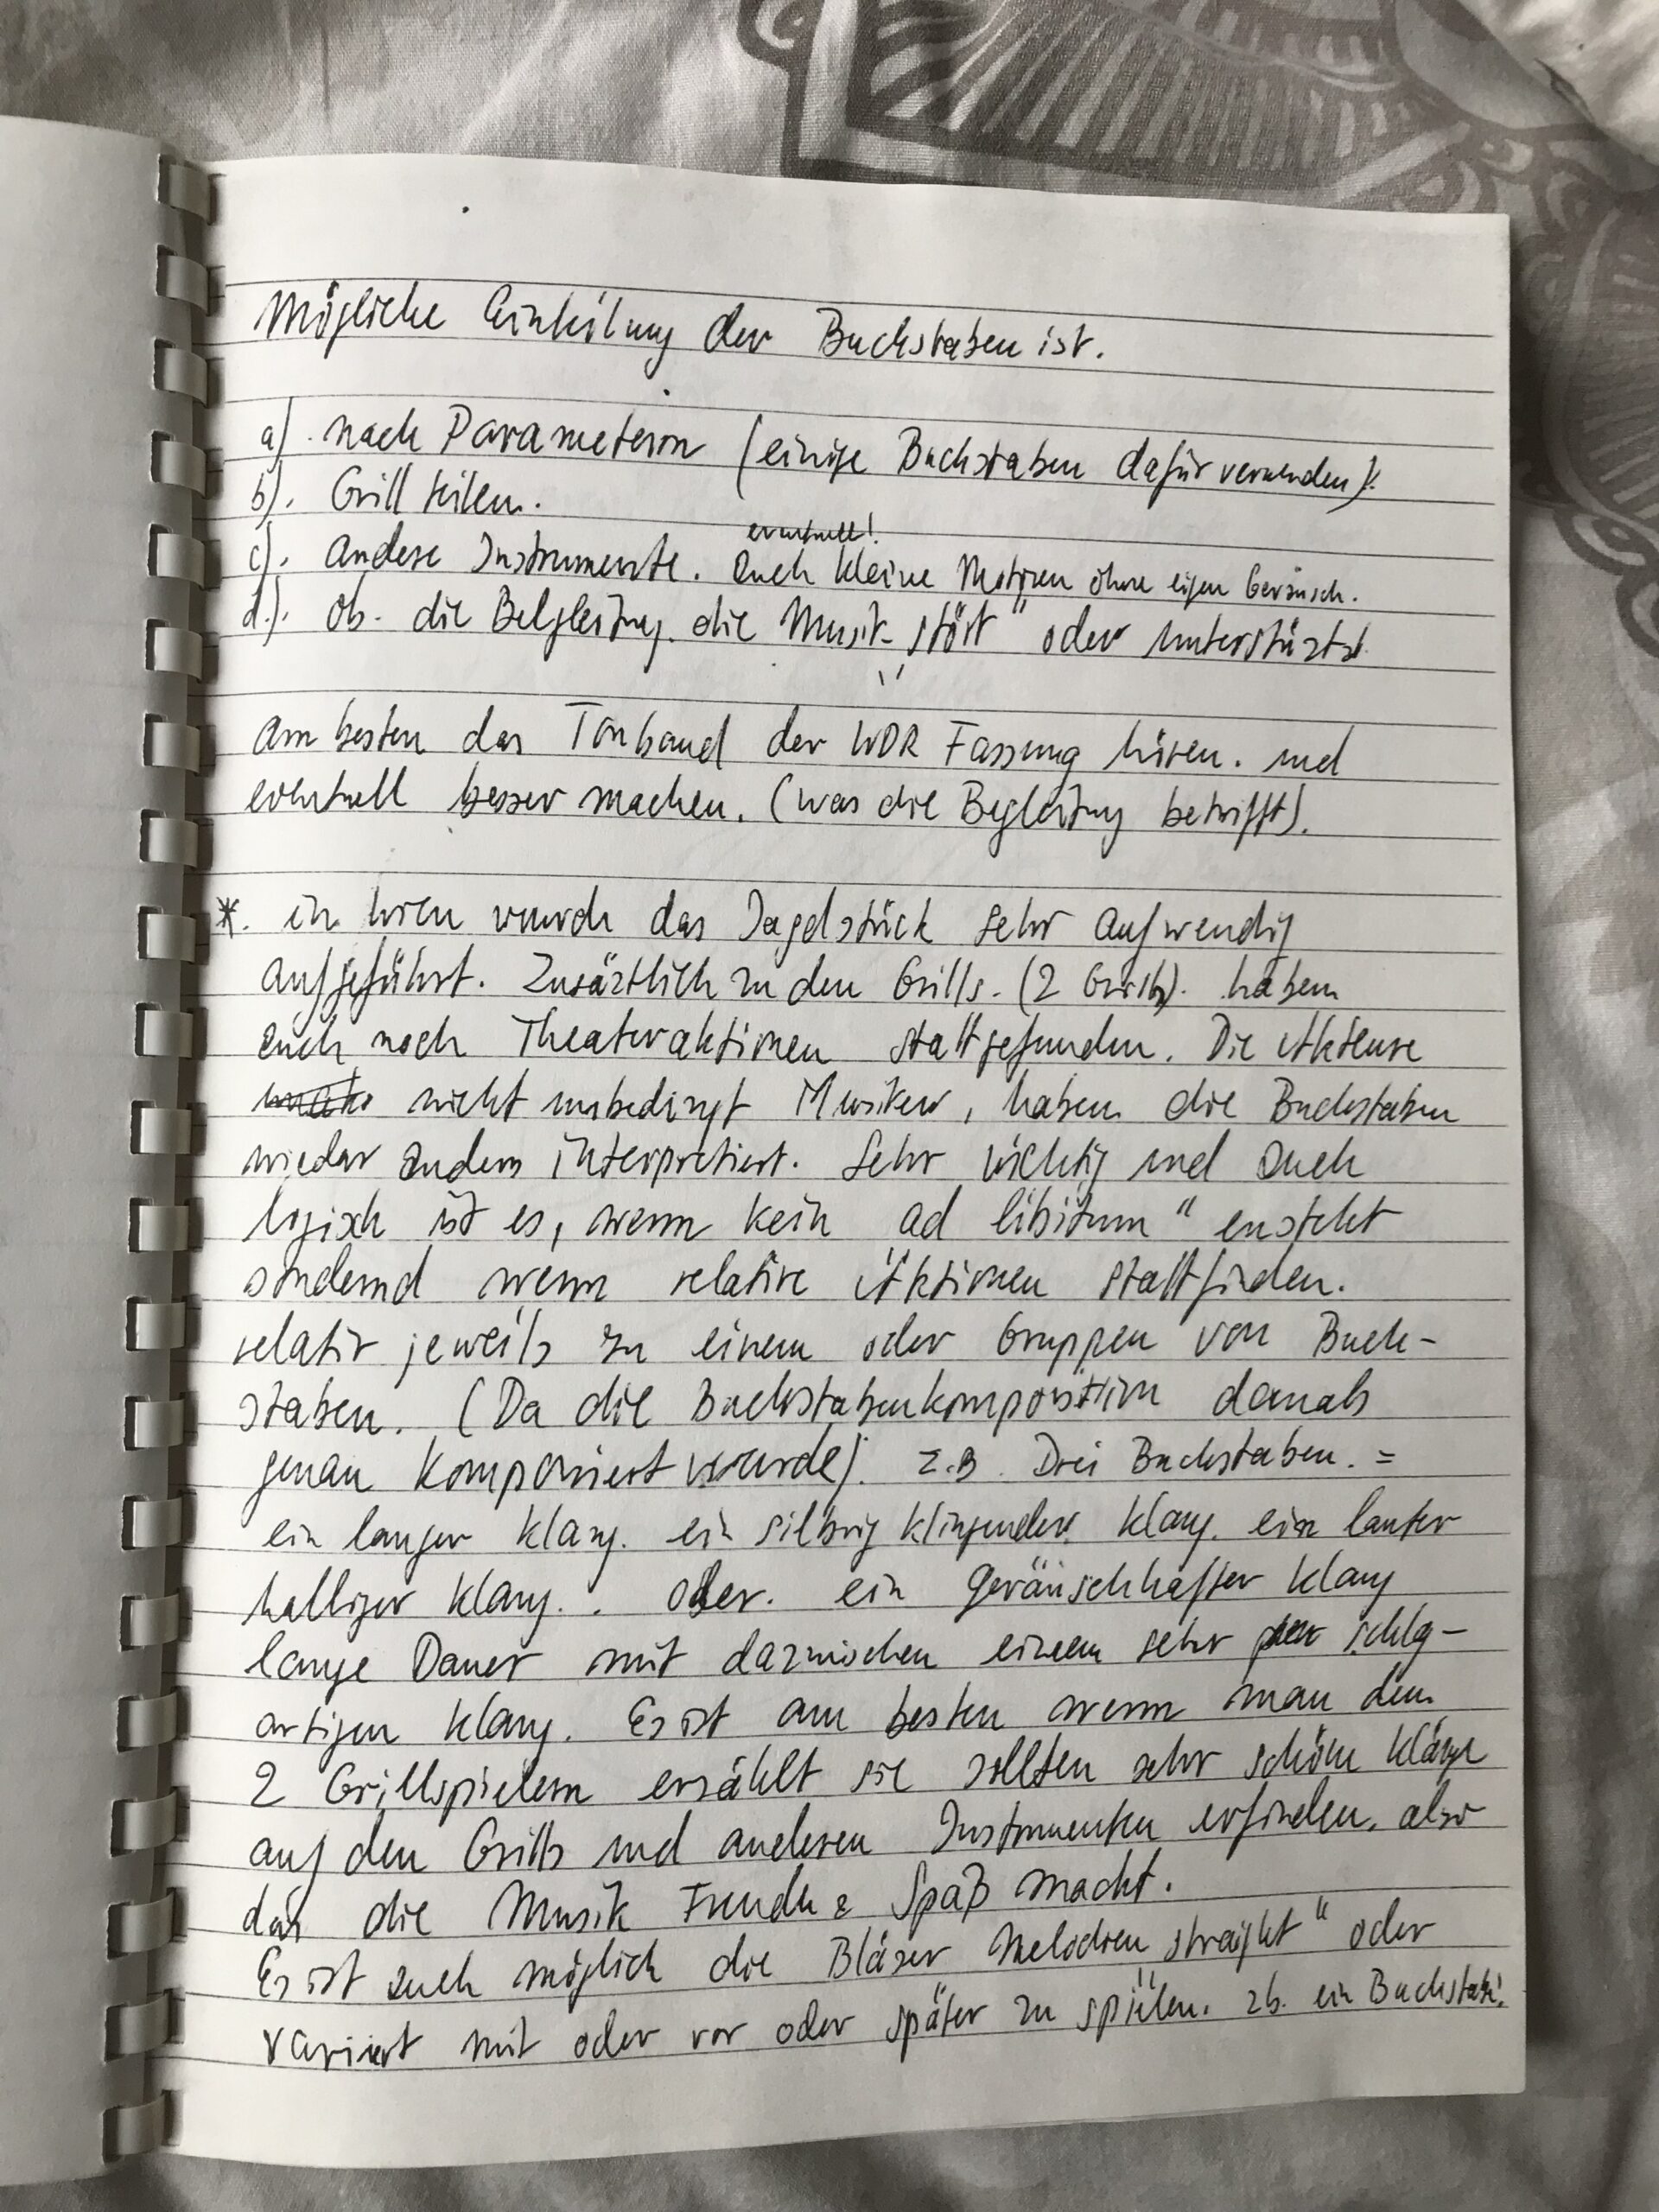 Mögliche Einteilung der Buchstaben ist.
a). nach Parametern (einige Buchstaben dafür verwenden).
b). Grill teilen.
eventuell!
c). andere Instrumente. auch kleine Motoren ohne eigen Geräusch.
d.). ob. die Belgleitung. die Musik „stört" oder unterstützt.
am besten das Tonband der WDR Fassung hören. und
eventuell besser machen. (was die Begleitung betrifft).
*. in Wien wurde das Jagdstück sehr aufwendig
aufgeführt. Zusätzlich zu den Grills. (2 Grills). haben
auch noch Theateraktionen stattgefunden. Die Akteure
nicht unbedingt Musiker, haben die Buchstaben
wieder anders interpretiert. Sehr wichtig und auch
logisch ist es, wenn kein ad libitum" ensteht
sondernd wenn relative Aktionen stattfinden.
relativ jeweils zu einem oder Gruppen von Buch-
staben. (Da die Buchstabenkomposition damals
genau komponiert wurde). z.B. Drei Buchstaben. =
ein langer Klang. ein silbrig klingender Klang. ein lauter
halliger Klang. . Oder. ein geräuschhafter Klang
lange Dauer mit dazwischen einem sehr schlag-
artigen Klang. Es ist am besten wenn man den
2 Grillspielern erzählt sie sollten sehr schöne Klänge
auf den Grills und anderen Instrumenten erfinden. also
das die Musik Freude & Spaß macht.
Es ist auch möglich die Bläser Melodien „straight" oder
variiert mit oder vor oder später zu spielen. zb. ein Buchstabe.